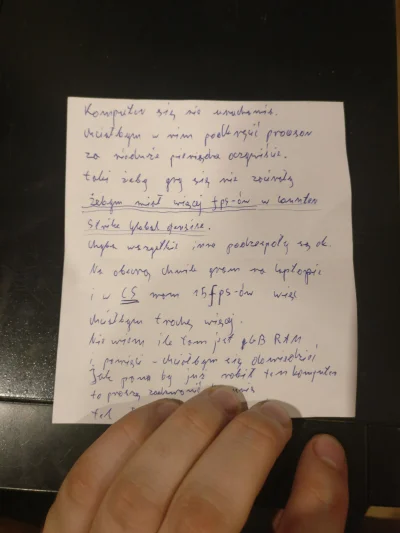 Komputer się nie uruchamia.
chciałbym w nim podkręcić procesor
za nieduże pieniądze oczywiście.
takie żeby gry się nie zacinały
Żebym miał więcej fps-ów w counter
strike global ofensive.
chyba wszystkie inne podzespoły są ok.
Na obecną chwilę gram na laptopie
i w CS mam 15 fps-ów więc
chciałbym trochę więcej.
Nie wiem ile tam jest GB RAM
i pamięci - chciałbym się dowiedzieć
Jak pana by już robił ten komputer
to proszę zadzwonić
tel